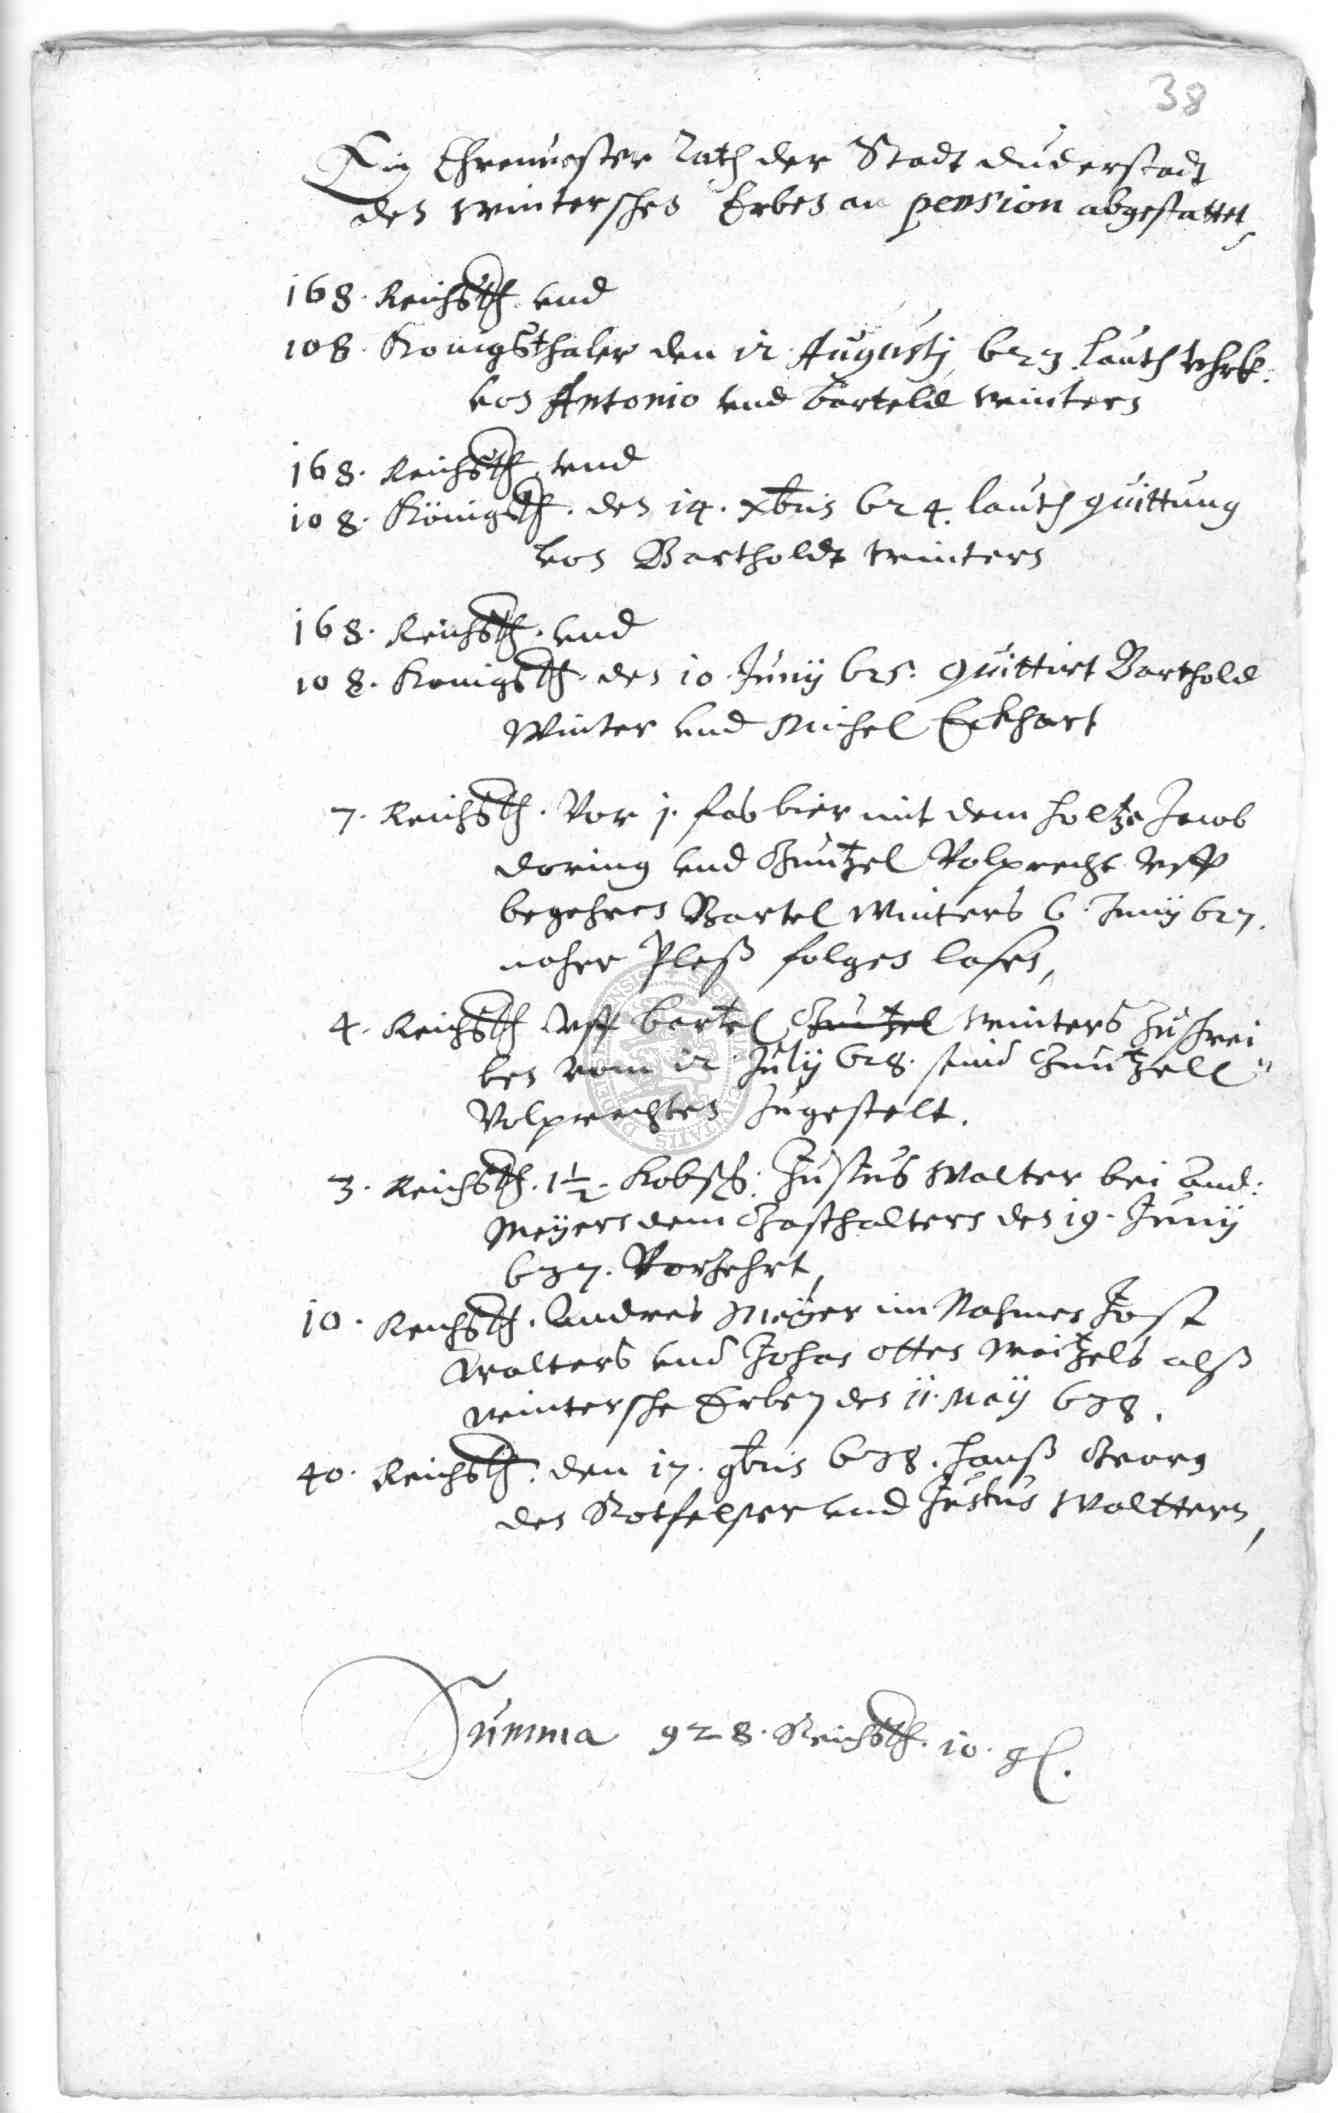 38
Ein Ehrenvester Rath der Stadt Duderstadt
den Winterschen Erben an pension abgestattet
168. Reichsth. vnd
108. Konigsthaler den 12 Augusti 623. lauth
von Antonio vnd Barteld Winters
168. Reichsth. vnd
108. Königsth. den 14. xbris 624. lauth quittung
von Bartholdt Winters
168. Reichsth. vnd
108. Konigsth. den 10 Junij 625. quittirt Barthold
Winter vnd Michel Eckhart
7. Reichsth. Vor 1. fas bier mit dem holtze Jacob
Doring vnd Guntzel Volprecht vff
begehren Bartel Winters 6 Junij 627.
naher Pleß folgen lasen,
4. Reichsth. vff Bartel Guntzel Winters Zuschrei
ben vom 12 July 628. seind Guntzell
Volprechten Zugestelt.
3. Reichsth. 1½. Justus Walter bei And:
Meyern dem Gasthalters den 19. Junij
637. Vorzehrt,
10. Reichsth. Andres Meyer im Nahmen Jost
Walters vnd Johan Otten Weitzels alß
Wintersche Erben den 11. Maij 638.
40. Reichsth. den 17. 9bris 638. Hanß Georg
den Rotfelser vnd Justus Walttern,
Summa 928. Reichsth. 10. gl.